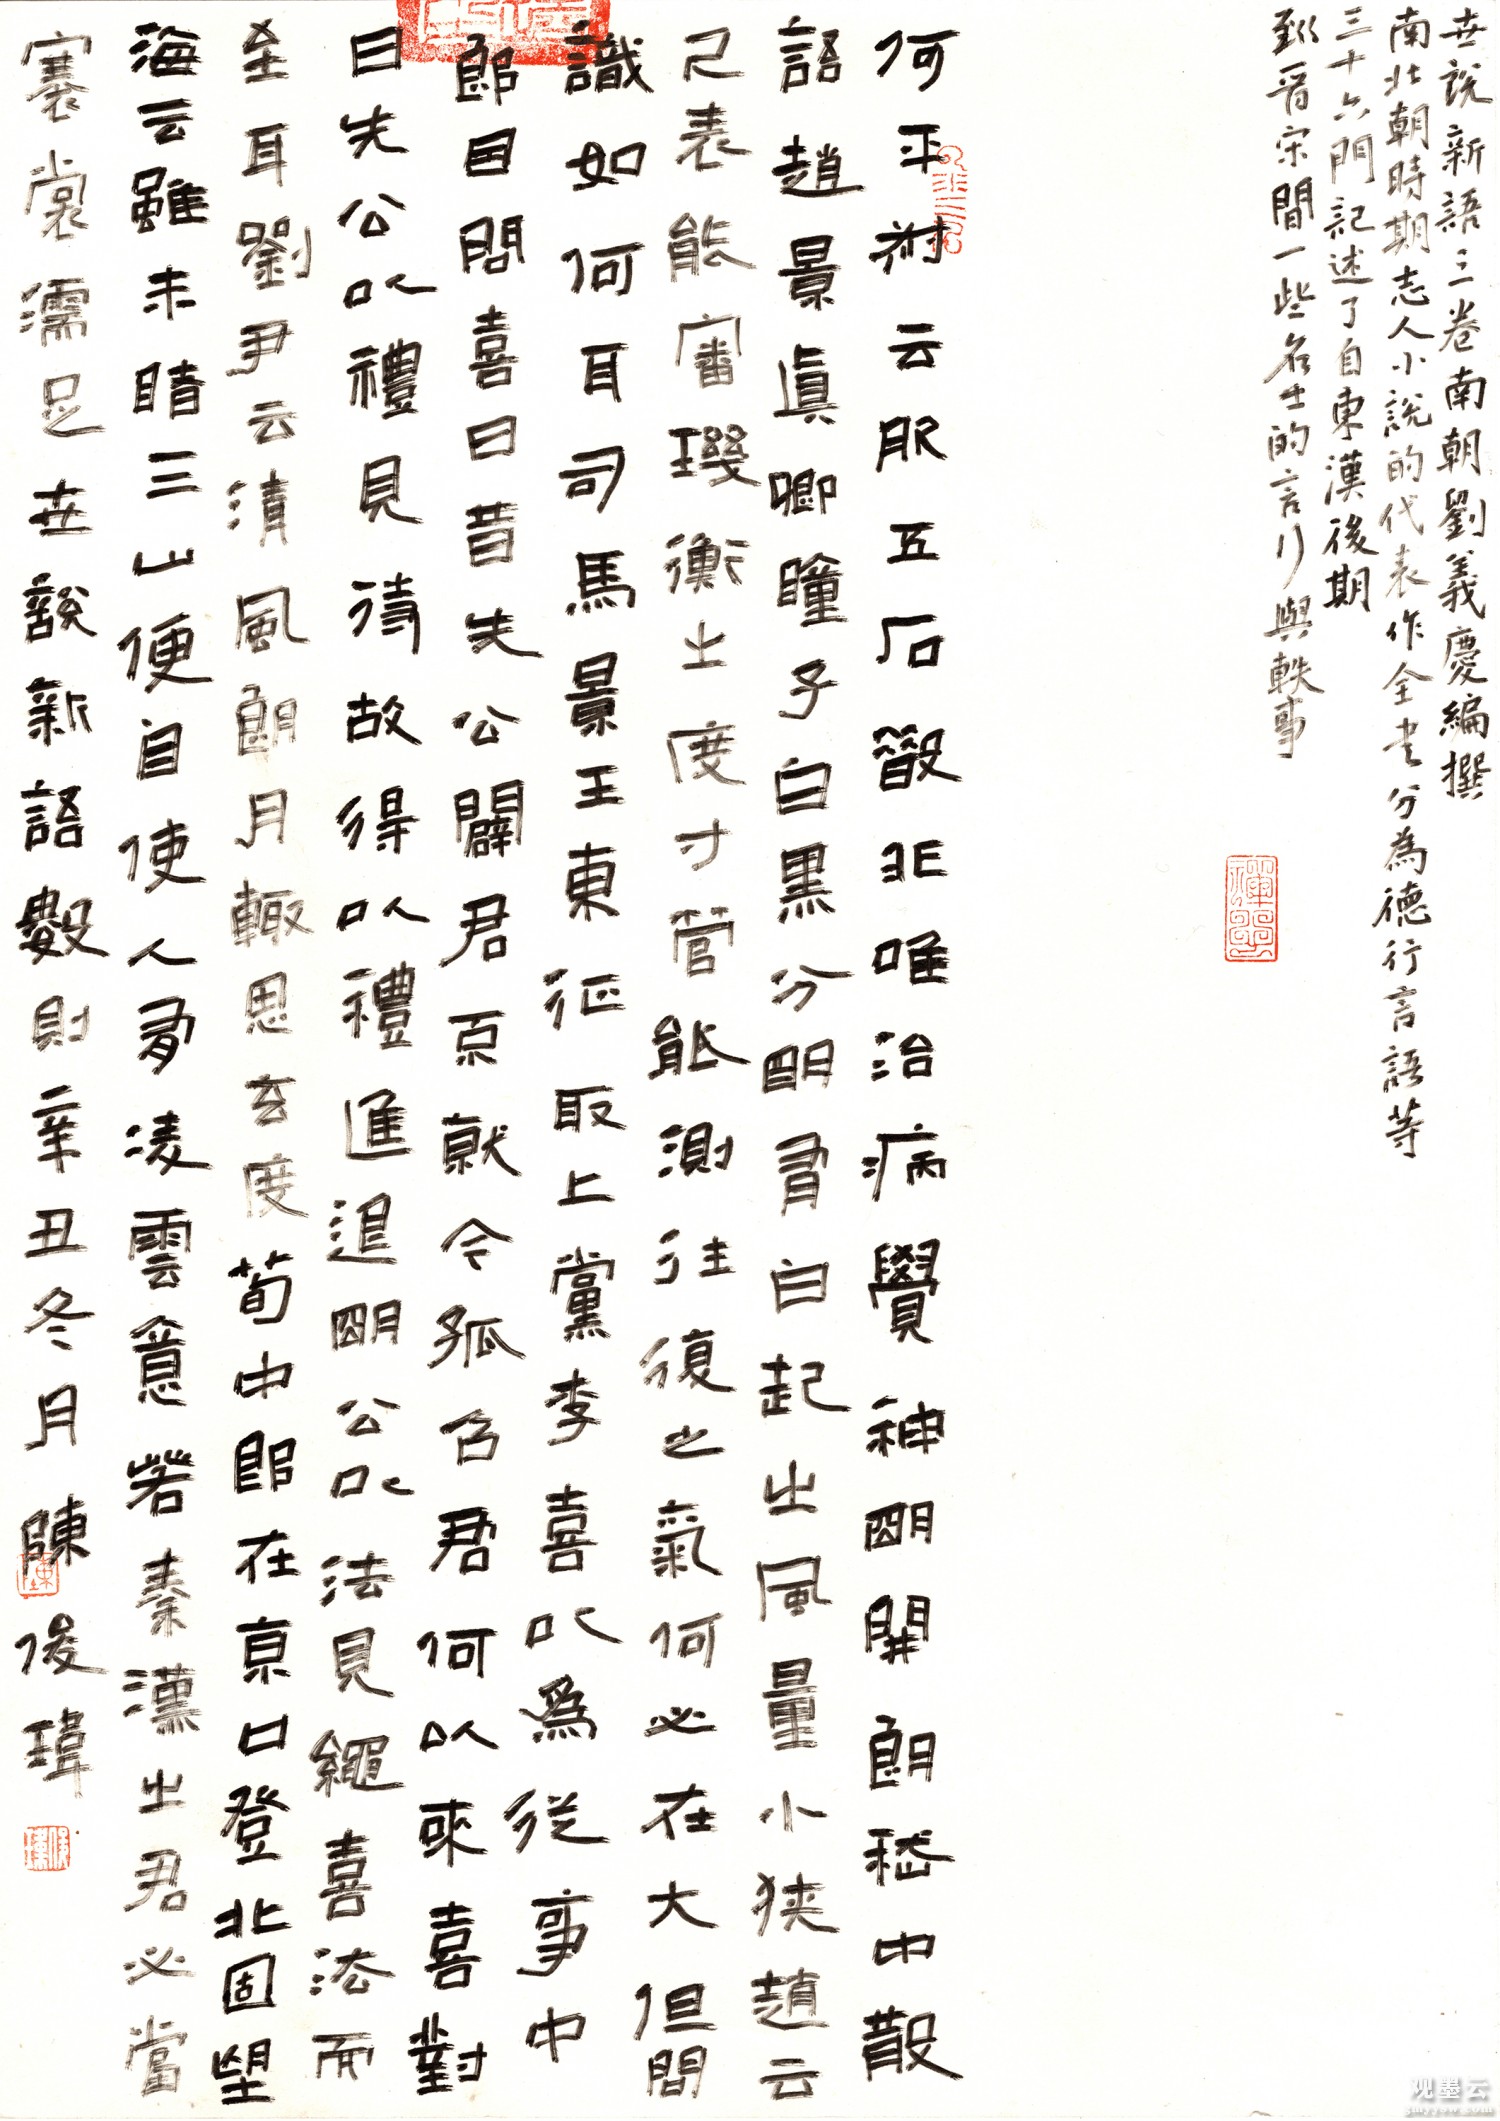 世說新語三卷南朝劉義慶編撰
南北朝時期志人小說的代表作全書分為德行言語等
三十六門記述了自東漢後期
到晉宋間一些名士的言行與軼事
何平叔云服五石散非唯治病覺神明開朗嵇中散
語趙景真卿瞳子白黑分明有白起之風量小狹趙云
尺表能審璣衡之度寸管能測往復之氣何必在大但問
識如何耳司馬景王東征取上黨李喜以為從事中
郎因問喜曰昔先公闢君不就今孤召君何以來喜對
曰先公以禮見待故得以禮進退明公以法見繩喜法而
至耳劉尹云清風朗月輒思玄度荀中郎在京口登北固望
海云雖未睹三山便自使人有凌雲意若秦漢之君必當
褰裳濡足世說新語數則辛丑冬月陳俊瑋
观墨云